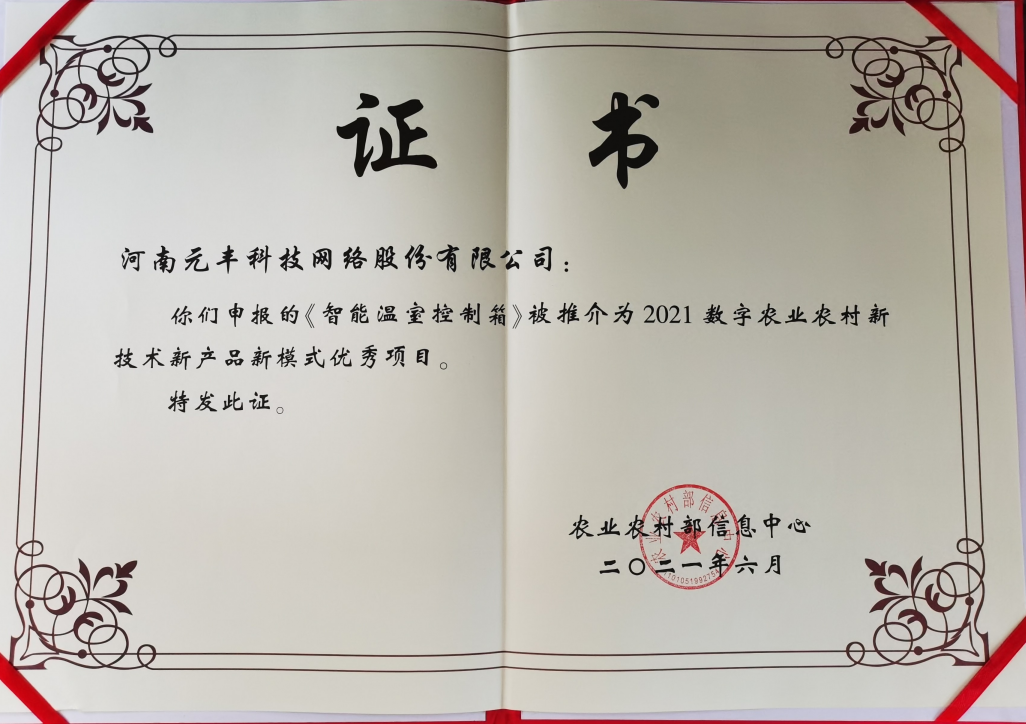 证 书
河南元丰科技网络股份有限公司：
你们申报的《智能温室控制箱》被推介为2021数字农业农村新
技术新产品新模式优秀项目。
特发此证。
农业农村部信息中心
二〇二一年六月
农业农村部信息中心